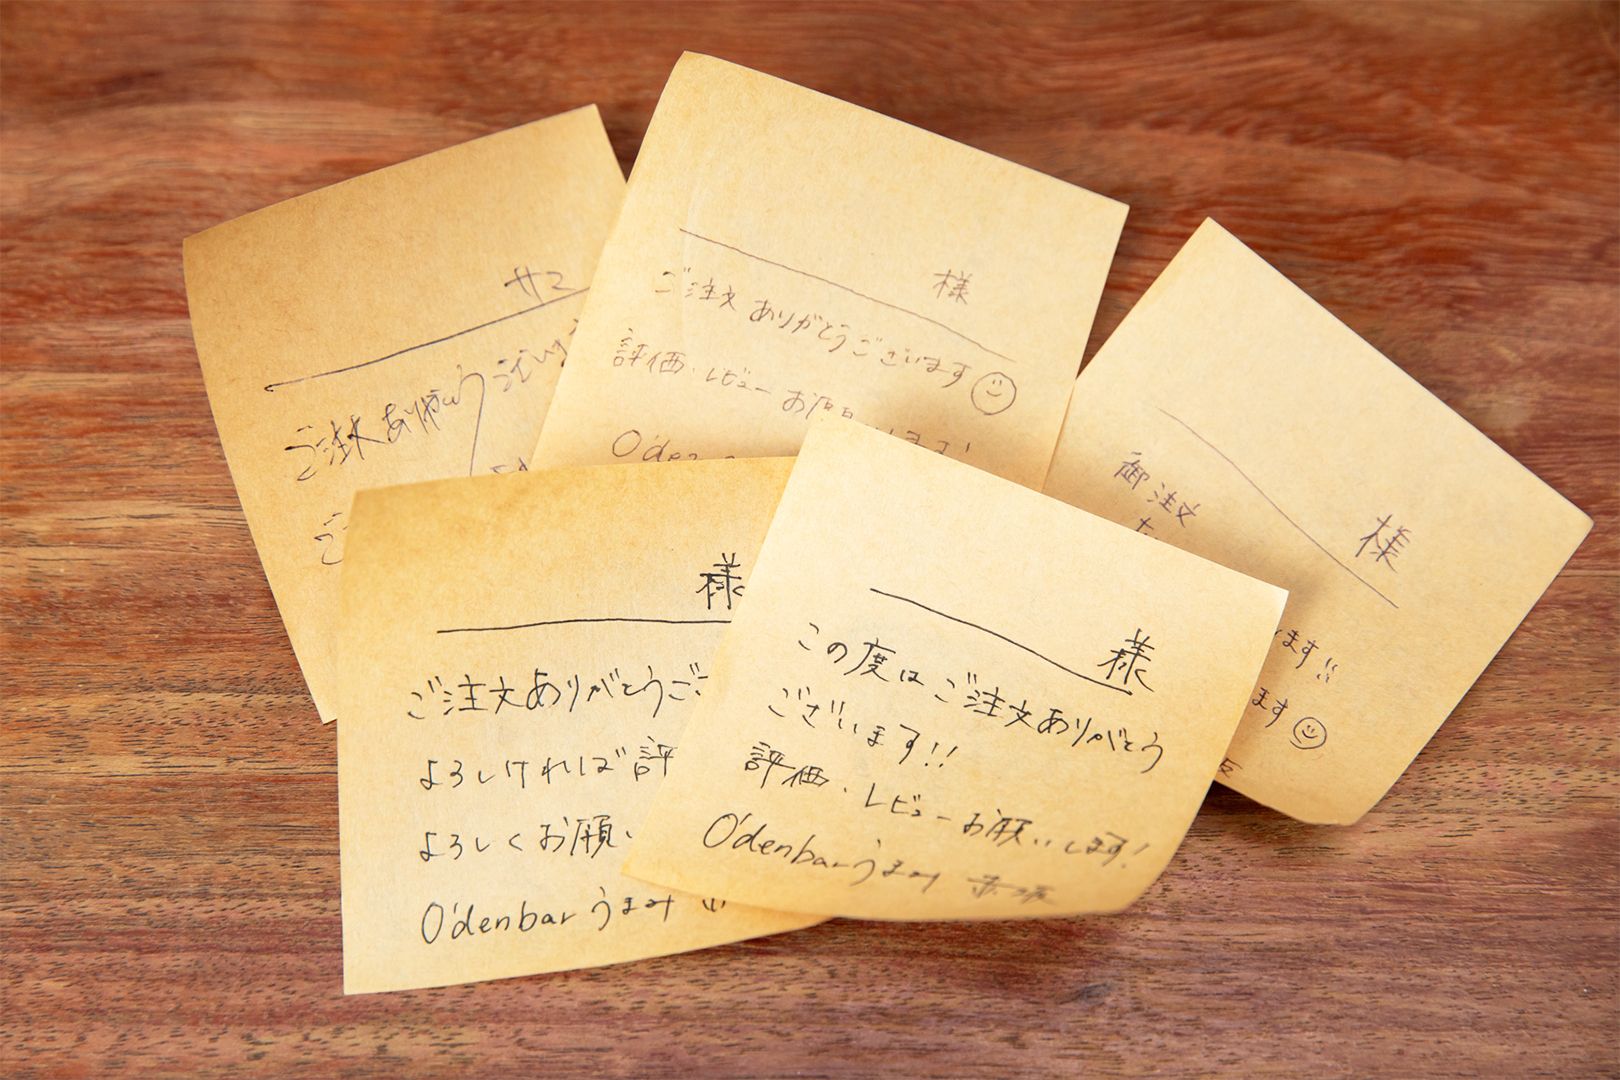 サマ
ご注文ありがとうございます
様
ご注文ありがとうございます
評価・レビューお願
O'den
様
御注文
ます!!
ます
様
ご注文ありがとうござ
よろしければ評
よろしくお願い
O'denbarうまみ
様
この度はご注文ありがとう
ございます!!
評価・レビューお願いします!
O'denbarうまみ 赤坂